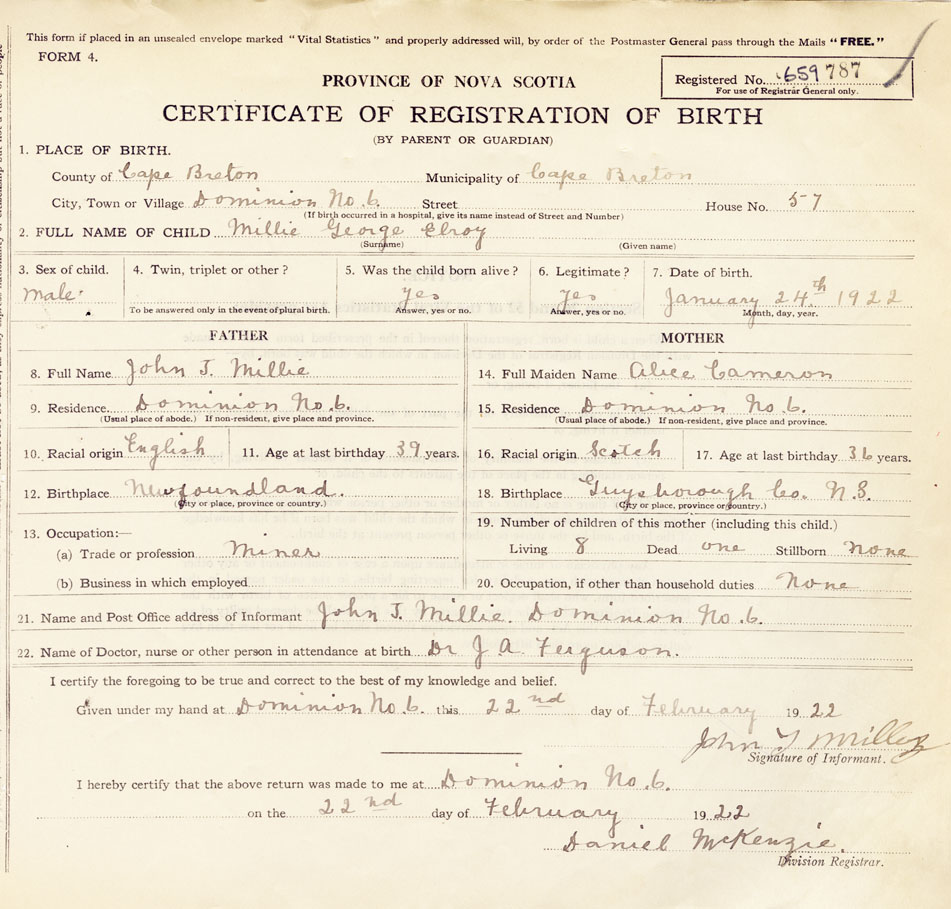 This form if placed in an unsealed envelope marked "Vital Statistics" and properly addressed will, by order of the Postmaster General pass through the Mails "FREE."
FORM 4.
Registered No. 659787
For use of Registrar General only.
PROVINCE OF NOVA SCOTIA
CERTIFICATE OF REGISTRATION OF BIRTH
(BY PARENT OR GUARDIAN)
1. PLACE OF BIRTH.
County of Cape Breton Municipality of Cape Breton
City, Town or Village Dominion No. 6. Street House No. 57
(If birth occurred in a hospital, give its name instead of Street and Number)
2. FULL NAME OF CHILD Millie George Elroy
(Surname) (Given name)
3. Sex of child. 4. Twin, triplet or other? 5. Was the child born alive? 6. Legitimate? 7. Date of birth.
Male yes yes January 24th 1922
To be answered only in the event of plural birth. Answer, yes or no. Answer, yes or no. Month, day, year.
FATHER MOTHER
8. Full Name John T. Millie 14. Full Maiden Name Alice Cameron
9. Residence. Dominion No. 6. 15. Residence Dominion No. 6.
(Usual place of abode.) If non-resident, give place and province. (Usual place of abode.) If non-resident, give place and province.
10. Racial origin English 11. Age at last birthday 39 years. 16. Racial origin Scotch 17. Age at last birthday 36 years.
12. Birthplace Newfoundland. 18. Birthplace Guysborough Co. N.S.
(City or place, province or country.) (City or place, province or country.)
13. Occupation:— 19. Number of children of this mother (including this child.)
(a) Trade or profession Miner Living 8 Dead one Stillborn None
(b) Business in which employed 20. Occupation, if other than household duties None
21. Name and Post Office address of Informant John T. Millie. Dominion No. 6.
22. Name of Doctor, nurse or other person in attendance at birth Dr J. A. Ferguson.
I certify the foregoing to be true and correct to the best of my knowledge and belief.
Given under my hand at Dominion No. 6. this 22nd day of February 1922
John T
Signature of Informant.
I hereby certify that the above return was made to me at Dominion No. 6.
on the 22nd day of February 1922
Daniel McKenzie.
Division Registrar.